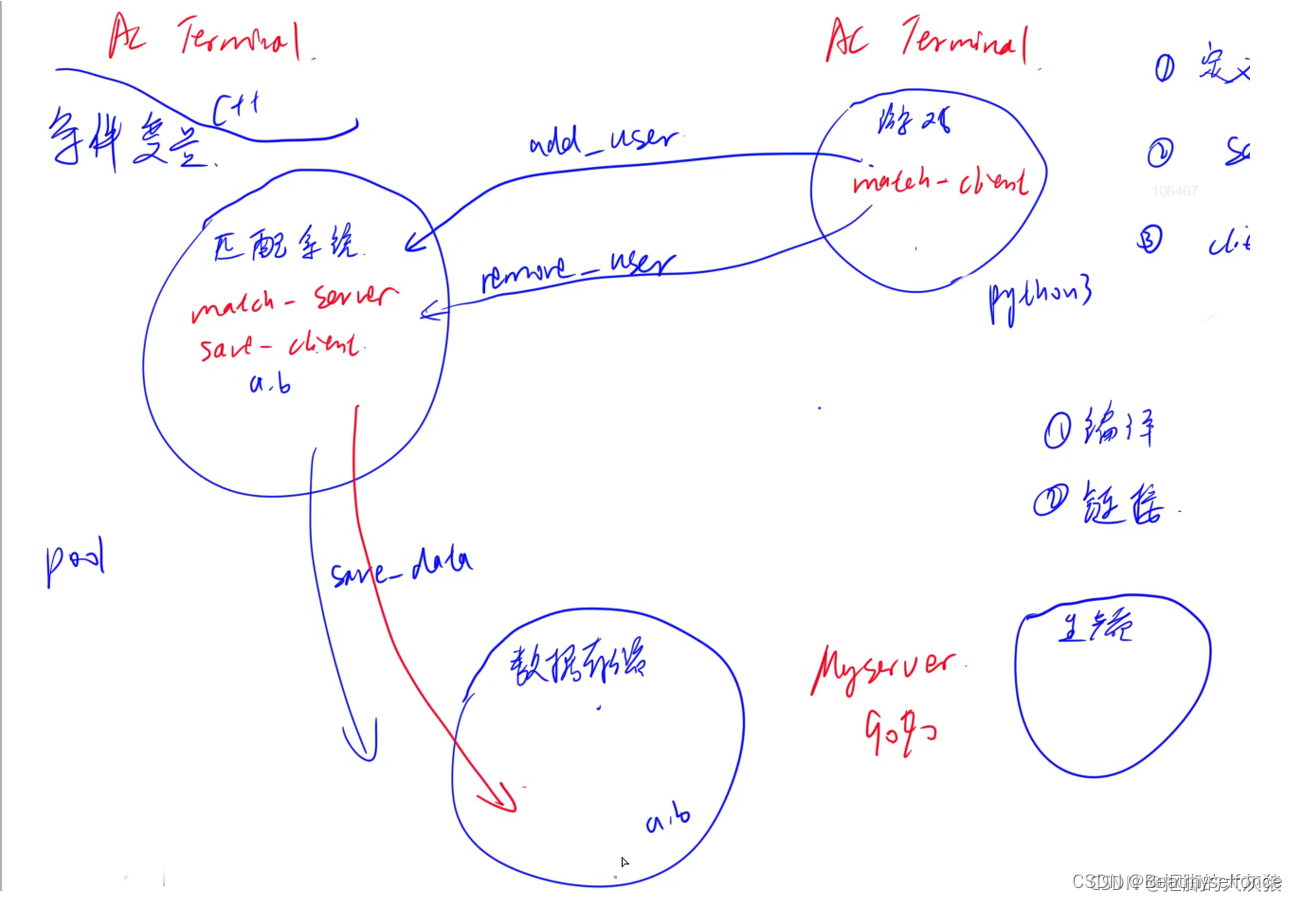 AC Terminal.
AC Terminal.
C++
条件变量.
① 定义
② Se
106467
③ clie
add_user
游戏
match-client
匹配系统.
remove_user
python3
match-server
save-client.
a.b
① 编译
② 链接.
pool
save_data
数据存储
Myserver.
9090
a.b
CSDN